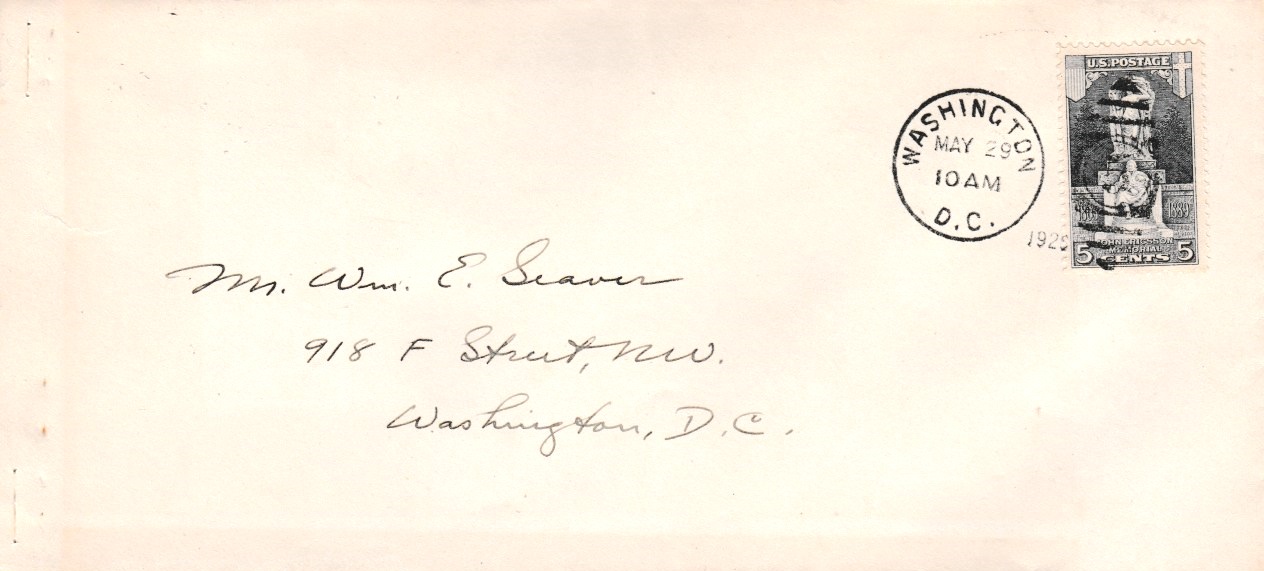 U.S. POSTAGE
WASHINGTON
MAY 29
10 AM
D.C.
1889
JOHN ERICSSON
MEMORIAL
5 CENTS 5
Mr. Wm. E. Seaver
918 F Street, N.W.
Washington, D.C.